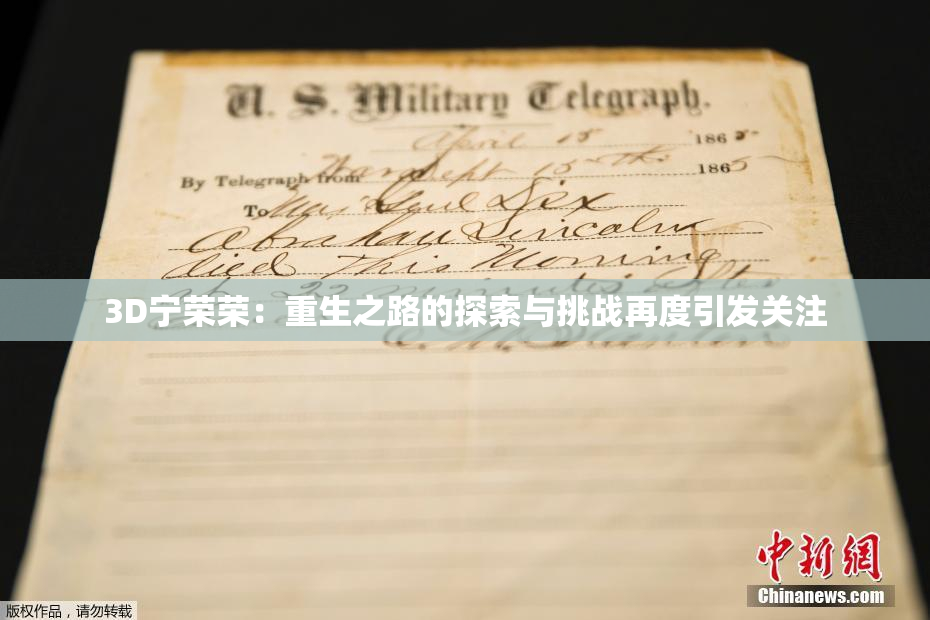 U. S. Military Telegraph.
April 15 1865
By Telegraph from War Dept 15th 1865
To Maj Genl Dix
Abraham Lincoln
died This Morning
at 22 minutes after
3D宁荣荣：重生之路的探索与挑战再度引发关注
E. M. Stanton
中新网
Chinanews.com
版权作品，请勿转载